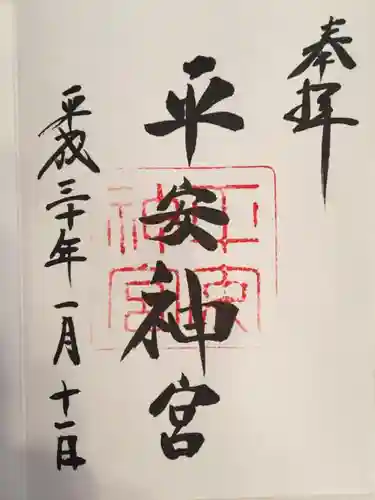 奉拝
平安神宮
平安神宮
平成三十年一月十一日